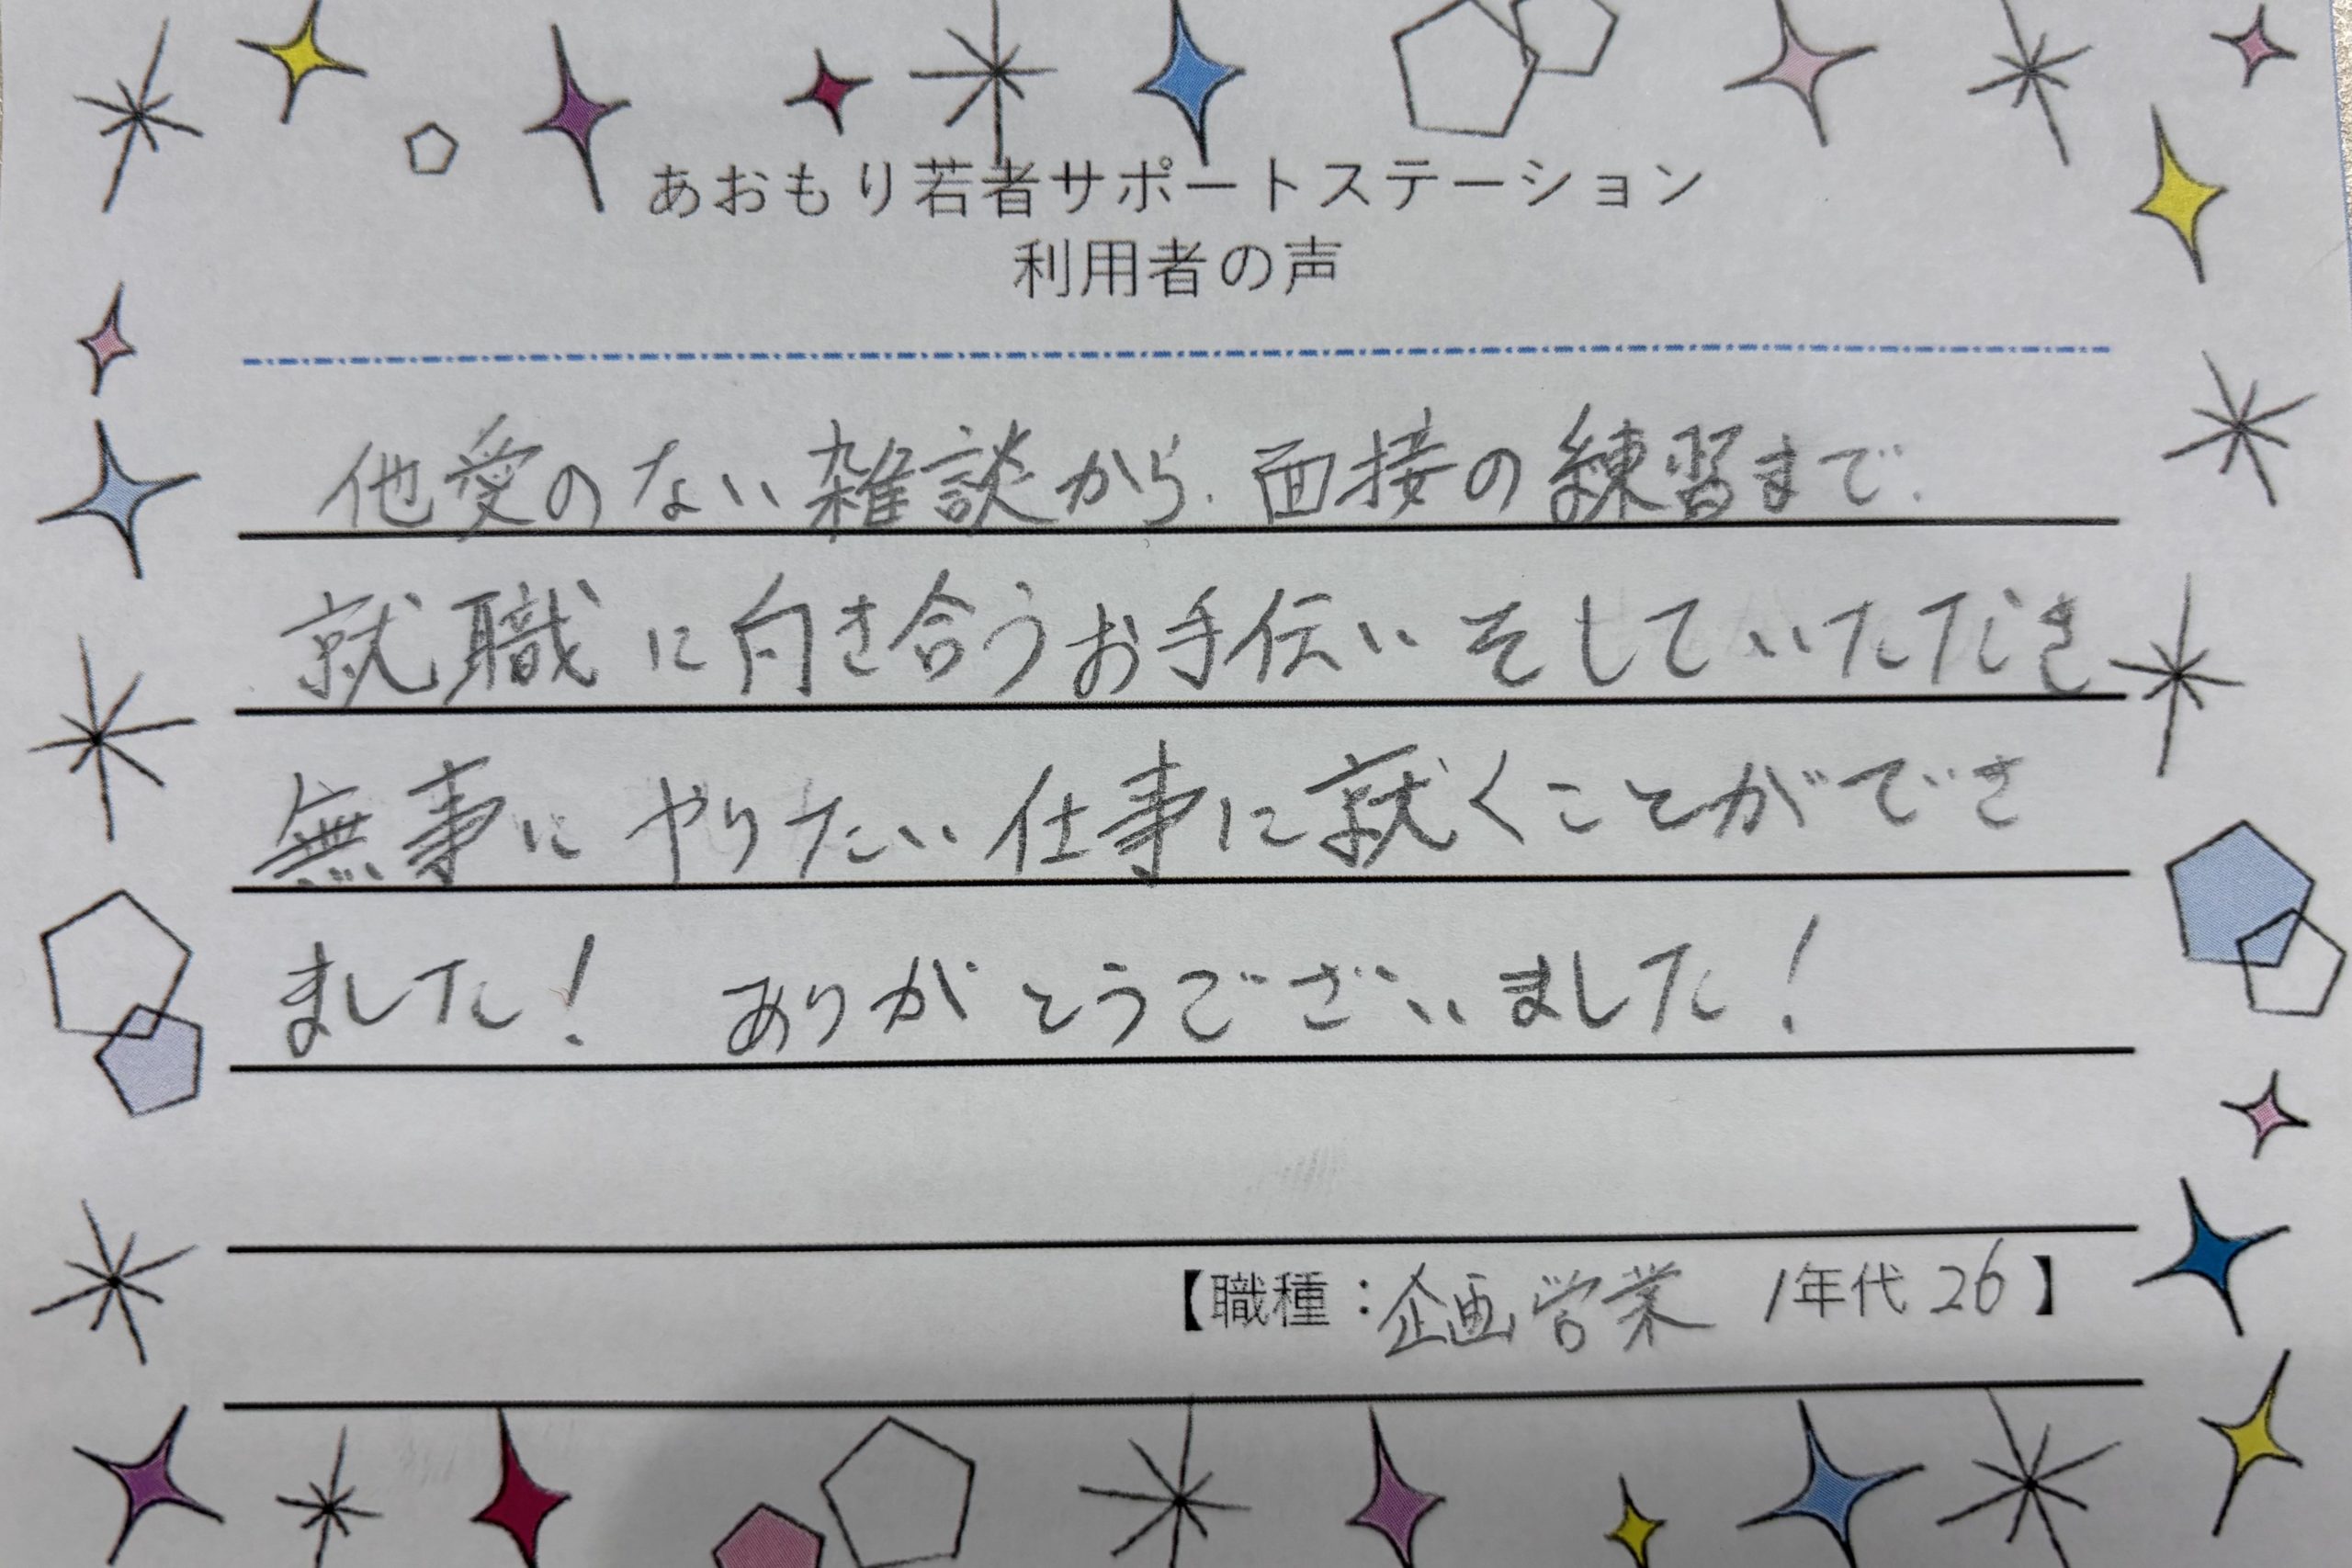 あおもり若者サポートステーション
利用者の声
他愛のない雑談から、面接の練習まで、
就職に向き合うお手伝いをしていただき
無事にやりたい仕事に就くことができ
ました! ありがとうございました!
【職種：企画営業 /年代 26】